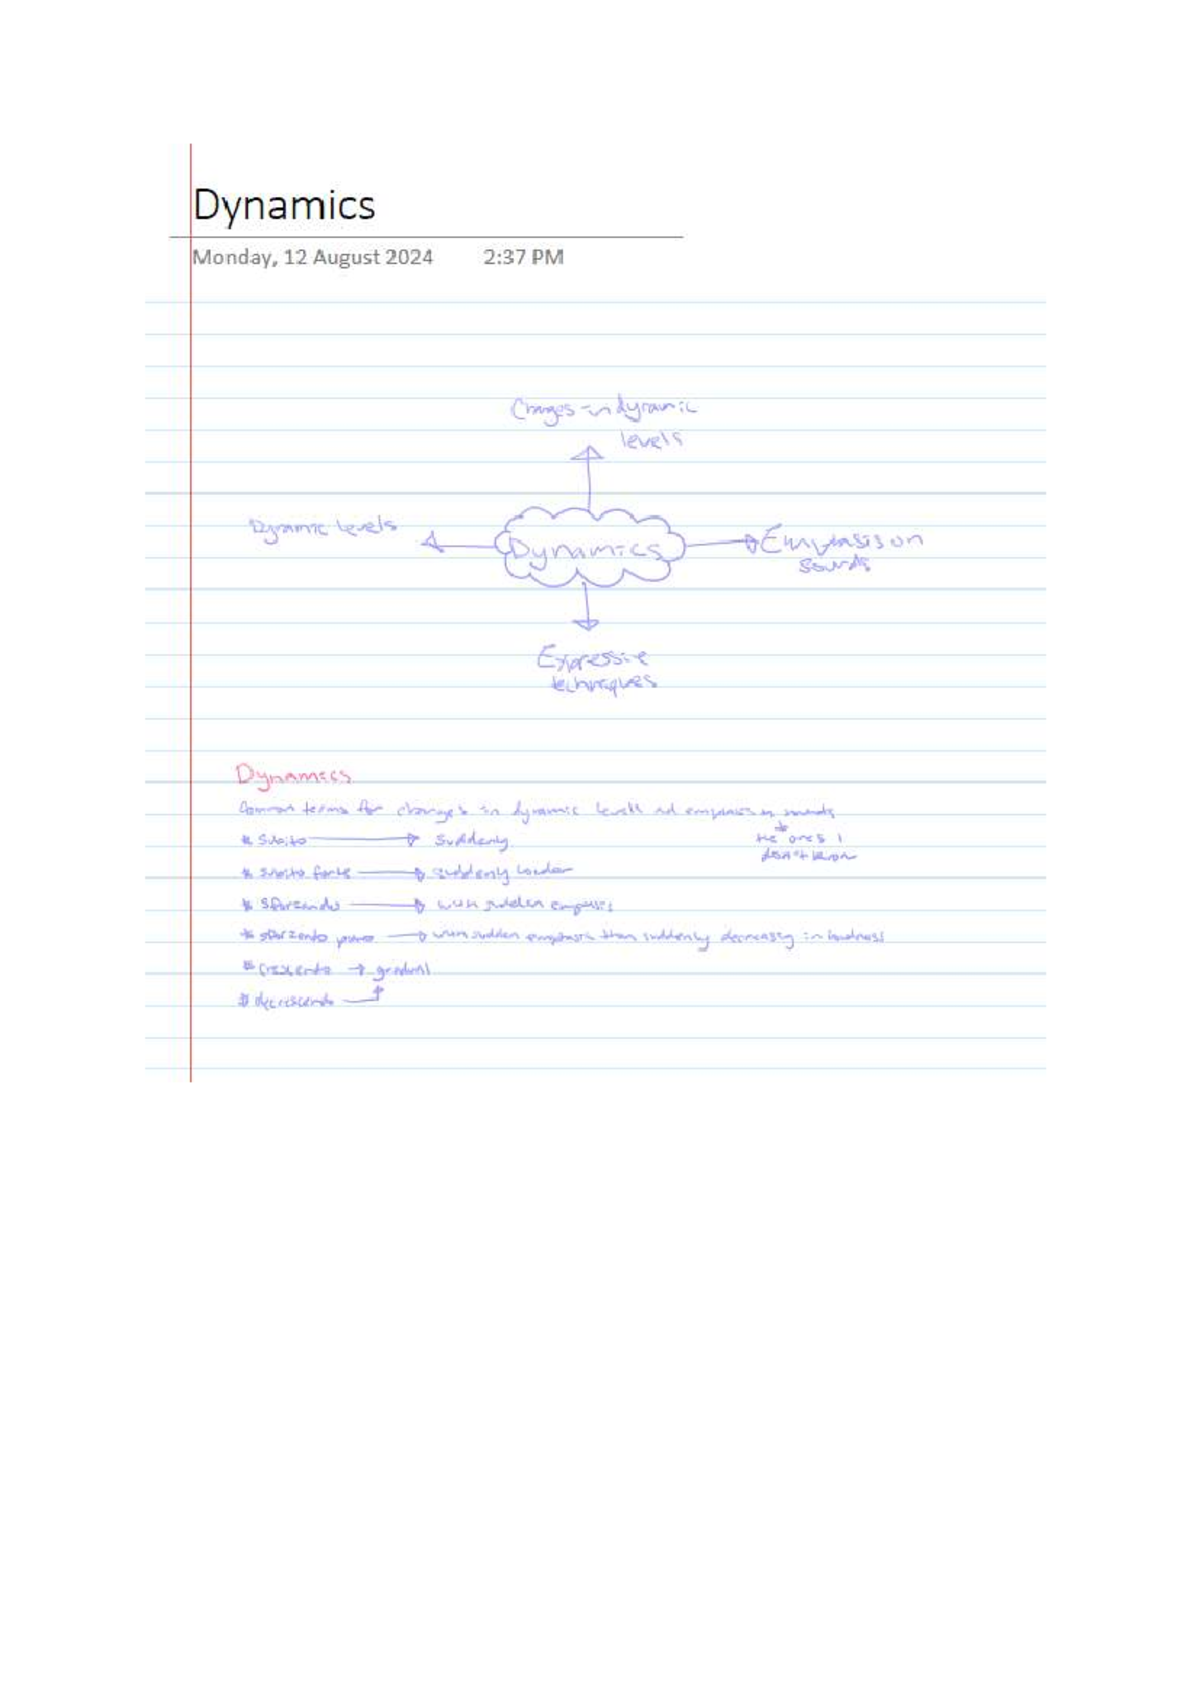 Dynamics
Monday, 12 August 2024 2:37 PM
Changes in dynamic
levels
Dynamic levels
Dynamics
Emphasis on
sounds
Expressive
techniques
Dynamics
Common terms for changes in dynamic levels and emphasis on sounds
* Subito → Suddenly
the ones I
don't know
* subito forte → suddenly louder
* Sforzando → with sudden emphasis
* sforzento piano → with sudden emphasis then suddenly decreasing in loudness
* crescento → gradual
* decrescendo